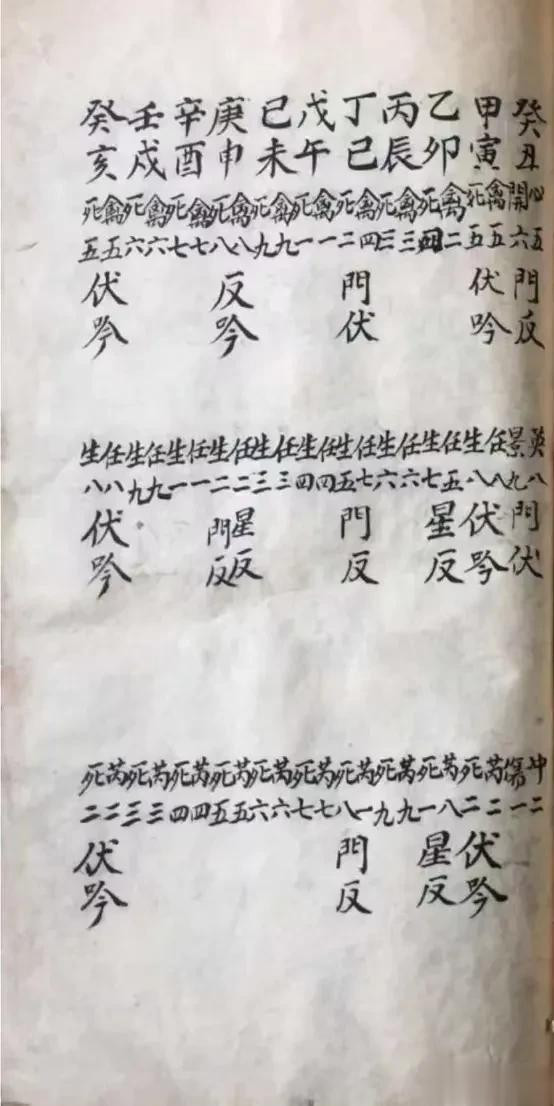 癸丑 心五 開六 門反
甲寅 禽五 死五 伏吟
乙卯 禽二 死四
丙辰 禽三 死三
丁巳 禽四 死二 門伏
戊午 禽一 死一
己未 禽九 死九
庚申 禽八 死八 反吟
辛酉 禽七 死七
壬戌 禽六 死六
癸亥 禽五 死五 伏吟
英八 景九 門伏
任八 生八 伏吟
任五 生七 星反
任六 生六
任七 生五 門反
任四 生四
任三 生三
任二 生二 星反 門反
任一 生一
任九 生九
任八 生八 伏吟
冲二 傷一
芮二 死二 伏吟
芮八 死一 星反
芮九 死九
芮一 死八 門反
芮七 死七
芮六 死六
芮五 死五
芮四 死四
芮三 死三
芮二 死二 伏吟